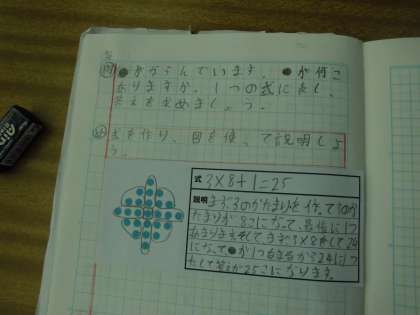 問
●がならんでいます。●が何こ
ありますか。1つの式に表し、
答えを求めましょう。
め
式を作り、図を使って説明しよ
う。
式 3×8+1=25
説明 まず、3のかたまりを作って3のか
たまりが8つになって、最後に1つ
あまりますそしてまず3×8をして24
になって●が1つあまるから24に1つ
たして答えが25こになります。